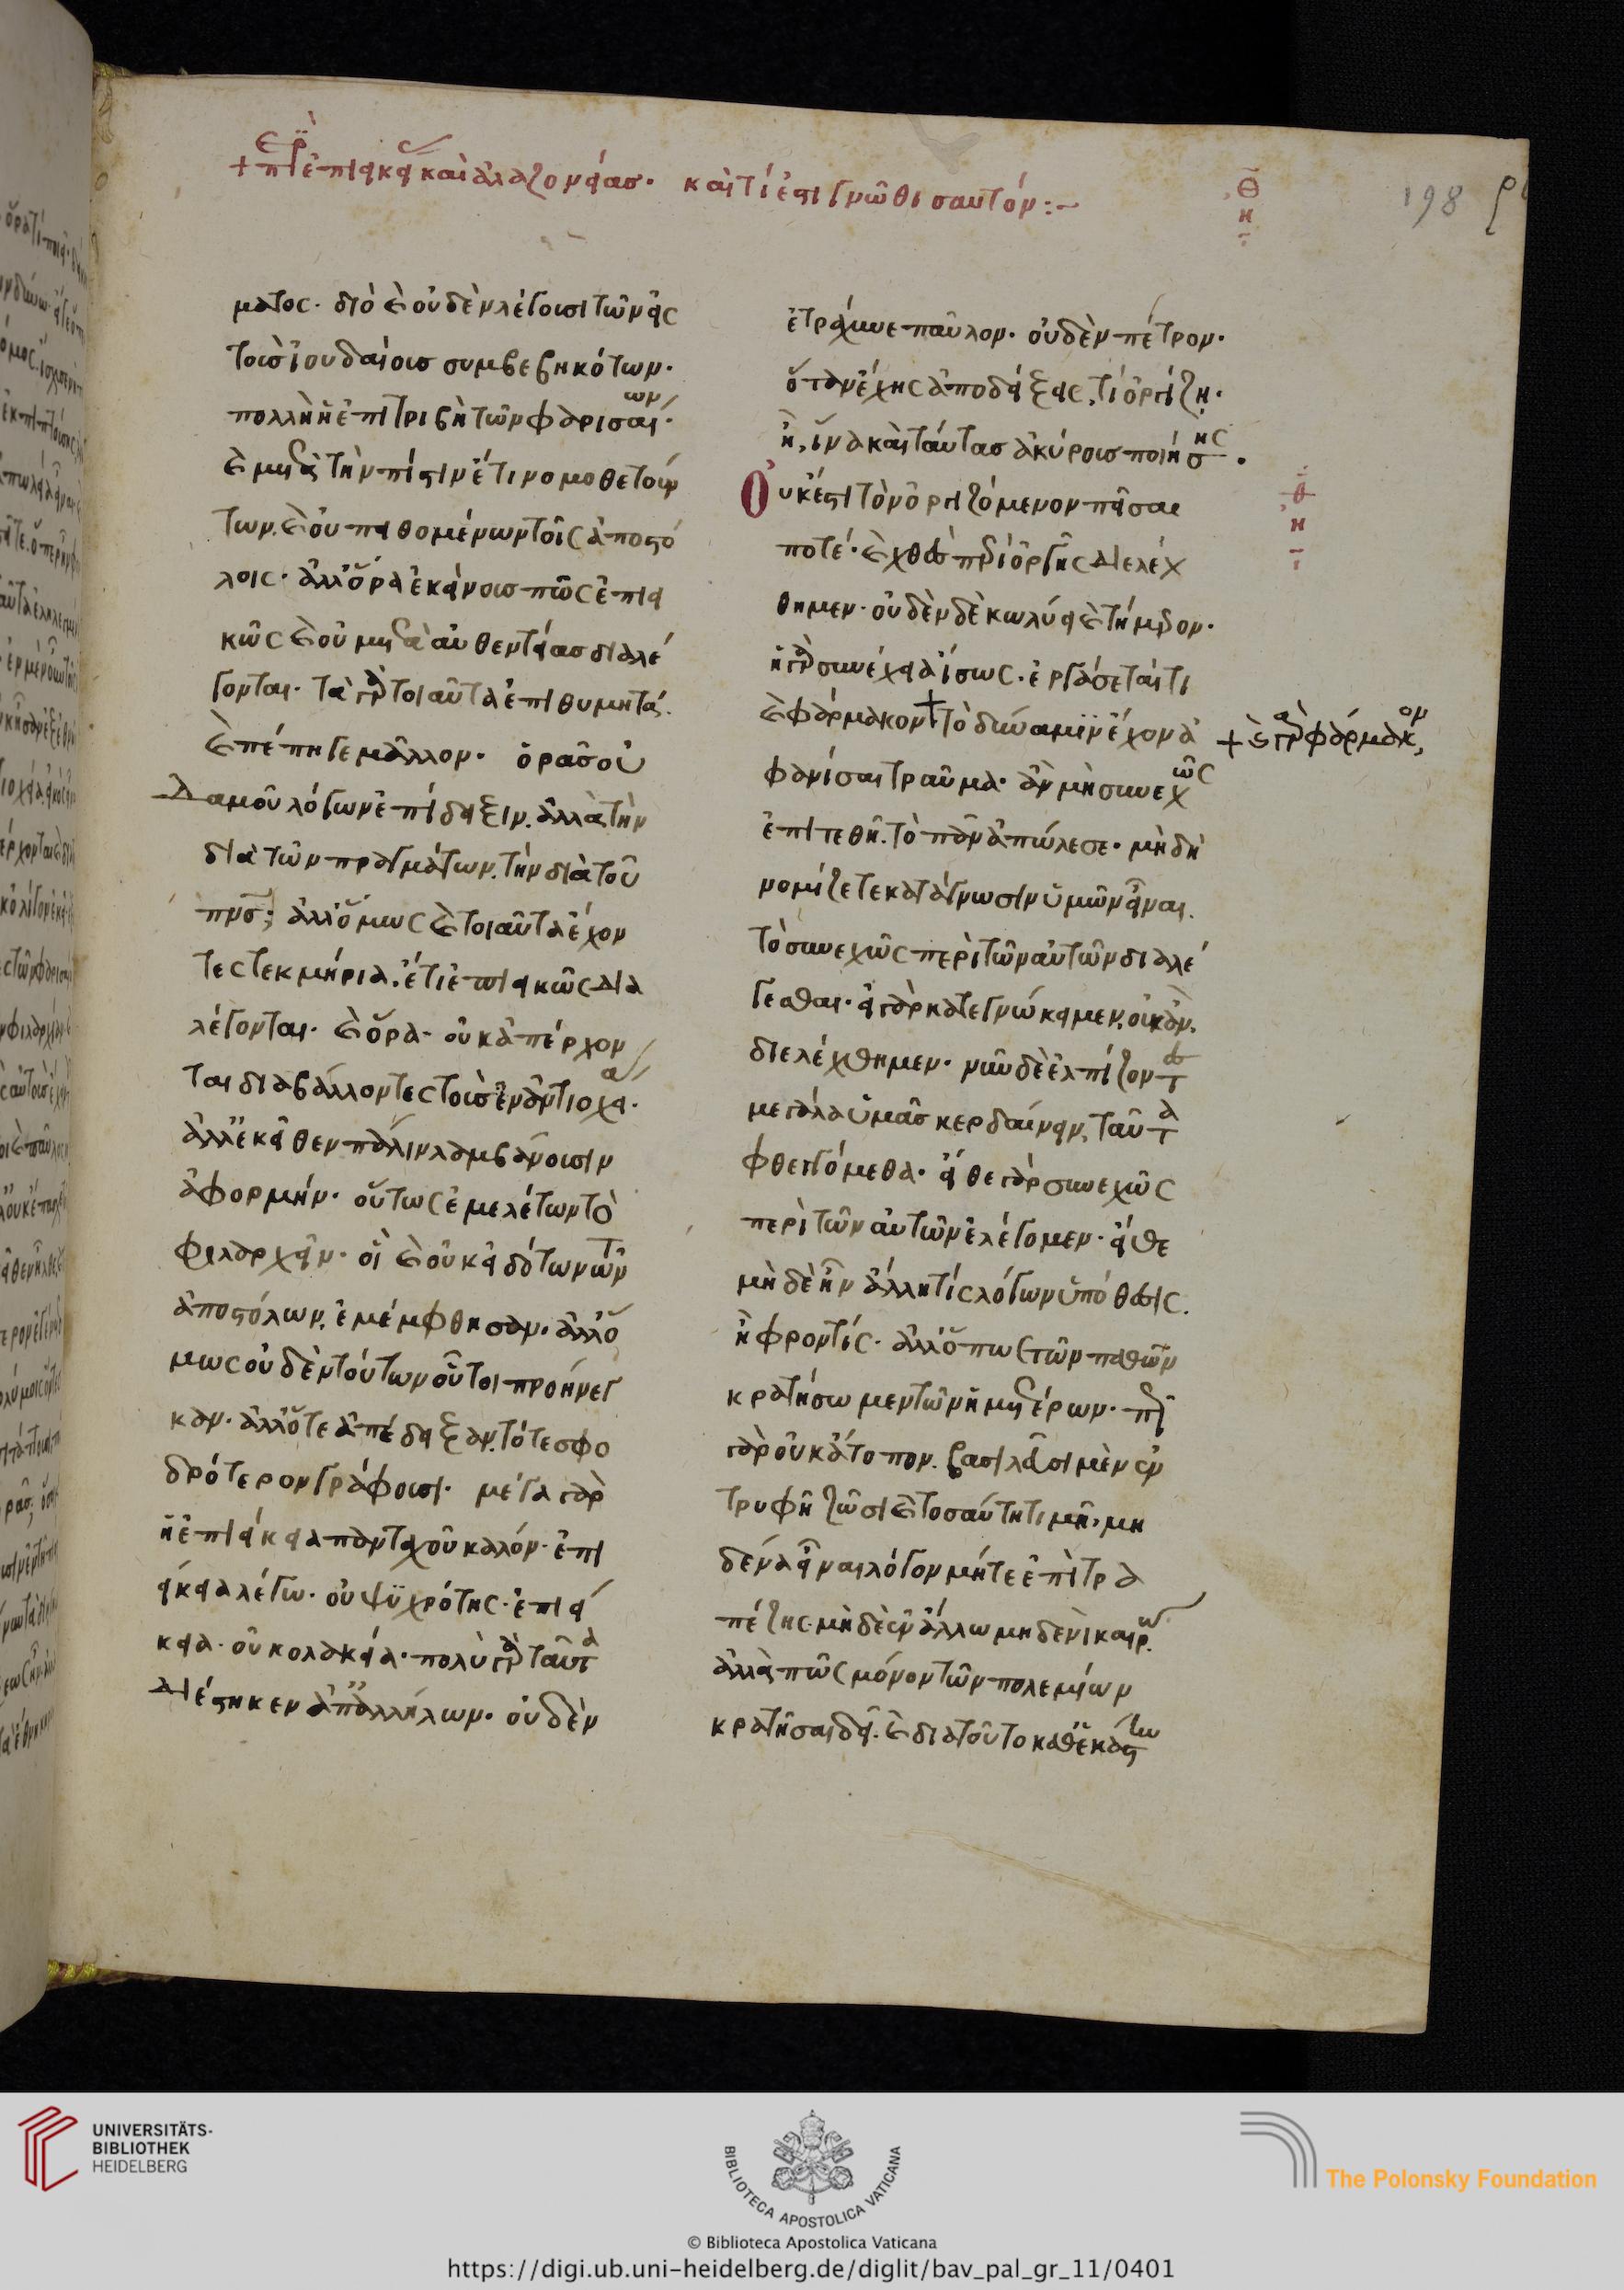 + περὶ ἐπιεικείας καὶ ἀλαζονείας· καὶ τί ἐστι γνῶθι σαυτόν:~
198
ματος· διὸ καὶ οὐδὲν λέγουσι τῶν εἰς
τοὺς ἰουδαίους συμβεβηκότων·
πολλὴ ἡ ἐπιτριβὴ τῶν φαρισαίων·
καὶ μετὰ τὴν πίστιν ἔτι νομοθετούν
των. καὶ οὐ πειθομένων τοῖς ἀποστό
λοις· ἀλλ' ὅρα ἐκείνους πῶς ἐπιει
κῶς καὶ οὐ μετὰ αὐθεντείας διαλέ
γονται· τὰ γὰρ τοιαῦτα ἐπιθυμητά.
καὶ πέπηγε μᾶλλον· ὁρᾶς οὐ
δαμοῦ λόγων ἐπίδειξιν. ἀλλὰ τὴν
διὰ τῶν πραγμάτων. τὴν διὰ τοῦ
πνσ; ἀλλ' ὅμως καὶ τοιαῦτα ἔχον
τες τεκμήρια. ἔτι ἐπιεικῶς δια
λέγονται· καὶ ὅρα· οὐκ ἀπέρχον
ται διαβάλλοντες τοὺς ἐν ἀντιοχεία·
ἀλλ' ἐκεῖθεν πάλιν λαμβάνουσιν
ἀφορμήν· οὕτως ἐμελέτων τὸ
φιλαρχεῖν· οἳ καὶ οὐκ εἰδότων τῶν
ἀποστόλων, ἐμέμφθησαν· ἀλλ' ὅ
μως οὐδὲν τούτων οὗτοι προήνεγ
καν· ἀλλ' ὅτε ἀπέδειξαν, τότε σφο
δρότερον γράφουσι· μέγα γὰρ
ἡ ἐπιείκεια πανταχοῦ καλόν· ἐπι
είκεια λέγω· οὐ ψϋχρότης· ἐπιεί
κεια· οὐ κολακεία· πολὺ γὰρ ταῦτα
διέστηκεν ἀπ' ἀλλήλων· οὐδὲν
ἐτράχυνε παῦλον· οὐδὲν πέτρον·
ὅταν ἔχης ἀποδείξεις, τί ὀργίζη·
ἢ, ἵνα καὶ ταύτας ἀκύρους ποιήσης·
Οὐκ ἔστι τὸν ὀργιζόμενον πεῖσαι
ποτέ· καὶ χθὲς περὶ ὀργῆς διελέχ
θημεν· οὐδὲν δὲ κωλύει καὶ τήμερον·
ἡ γὰρ συνέχεια ἴσως· ἐργάσεταί τι
καὶ φάρμακον + τὸ δύναμϊν ἔχον ἀ
+ καὶ γὰρ φάρμακον,
φανίσαι τραῦμα· ἂν μὴ συνεχῶς
ἐπιτεθῆ. τὸ πᾶν ἀπώλεσε· μὴ δὴ
νομίζετε κατάγνωσιν ὑμῶν εἶναι.
τὸ συνεχῶς περὶ τῶν αὐτῶν διαλέ
γεσθαι· εἰ γὰρ κατεγνώκειμεν, οὐκ ἂν.
διελέχθημεν· νῦν δὲ ἐλπίζοντες
μεγάλα ὑμᾶς κερδαίνειν, ταῦτα
φθεγγόμεθα· εἴθε γὰρ συνεχῶς
περὶ τῶν αὐτῶν ἐλέγομεν· εἴθε
μὴ δὲ ἦν ἄλλη τίς λόγων ὑπόθεσις.
ἢ φροντίς· ἀλλ' ὅπως τῶν παθῶν
κρατήσωμεν τῶν ἡμετέρων· πῶς
γὰρ οὐκ ἄτοπον. βασιλεῦσι μὲν ἐν
τρυφῆ ζῶσι καὶ τοσαύτη τιμῆ, μη
δένα εἶναι λόγον μήτε ἐπὶ τρα
πέζης. μὴ δὲ ἐν ἄλλω μηδενὶ καιρῶ.
ἀλλὰ πῶς μόνον τῶν πολεμίων
κρατῆσαι δεῖ. καὶ διατοῦτο καθ' ἑκάστην
UNIVERSITÄTS-
BIBLIOTHEK
HEIDELBERG
BIBLIOTECA APOSTOLICA VATICANA
The Polonsky Foundation
© Biblioteca Apostolica Vaticana
https://digi.ub.uni-heidelberg.de/diglit/bav_pal_gr_11/0401